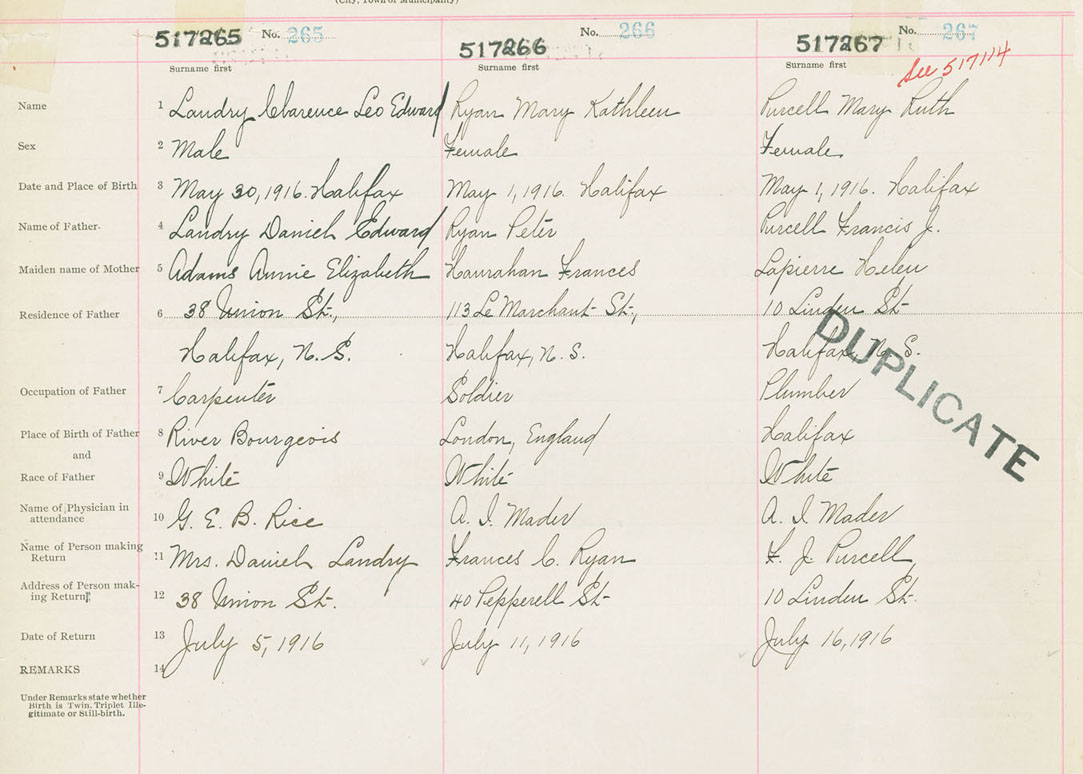 (City, Town or Municipality)
517265 No. 265 517266 No. 266 517267 No. 267
Surname first Surname first Surname first See 517114
Name 1 Landry Clarence Leo Edward Ryan Mary Kathleen Purcell Mary Ruth
Sex 2 Male Female Female
Date and Place of Birth 3 May 30, 1916. Halifax May 1, 1916. Halifax May 1, 1916. Halifax
Name of Father. 4 Landry Daniel Edward Ryan Peter Purcell Francis J.
Maiden name of Mother 5 Adams Annie Elizabeth Hanrahan Frances Lapierre Helen
Residence of Father 6 38 Union St., 113 Le Marchant St., 10 Linden St
Halifax, N.S. Halifax, N.S. Halifax N.S.
DUPLICATE
Occupation of Father 7 Carpenter Soldier Plumber
Place of Birth of Father 8 River Bourgeois London, England Halifax
and
Race of Father 9 White White White
Name of Physician in
attendance 10 G. E. B. Rice A. I. Mader A. I. Mader
Name of Person making
Return 11 Mrs. Daniel Landry Frances C. Ryan F. J. Purcell
Address of Person mak-
ing Return 12 38 Union St. 40 Pepperell St 10 Linden St.
Date of Return 13 July 5, 1916 July 11, 1916 July 16, 1916
REMARKS 14
Under Remarks state whether
Birth is Twin. Triplet Ille-
gitimate or Still-birth.